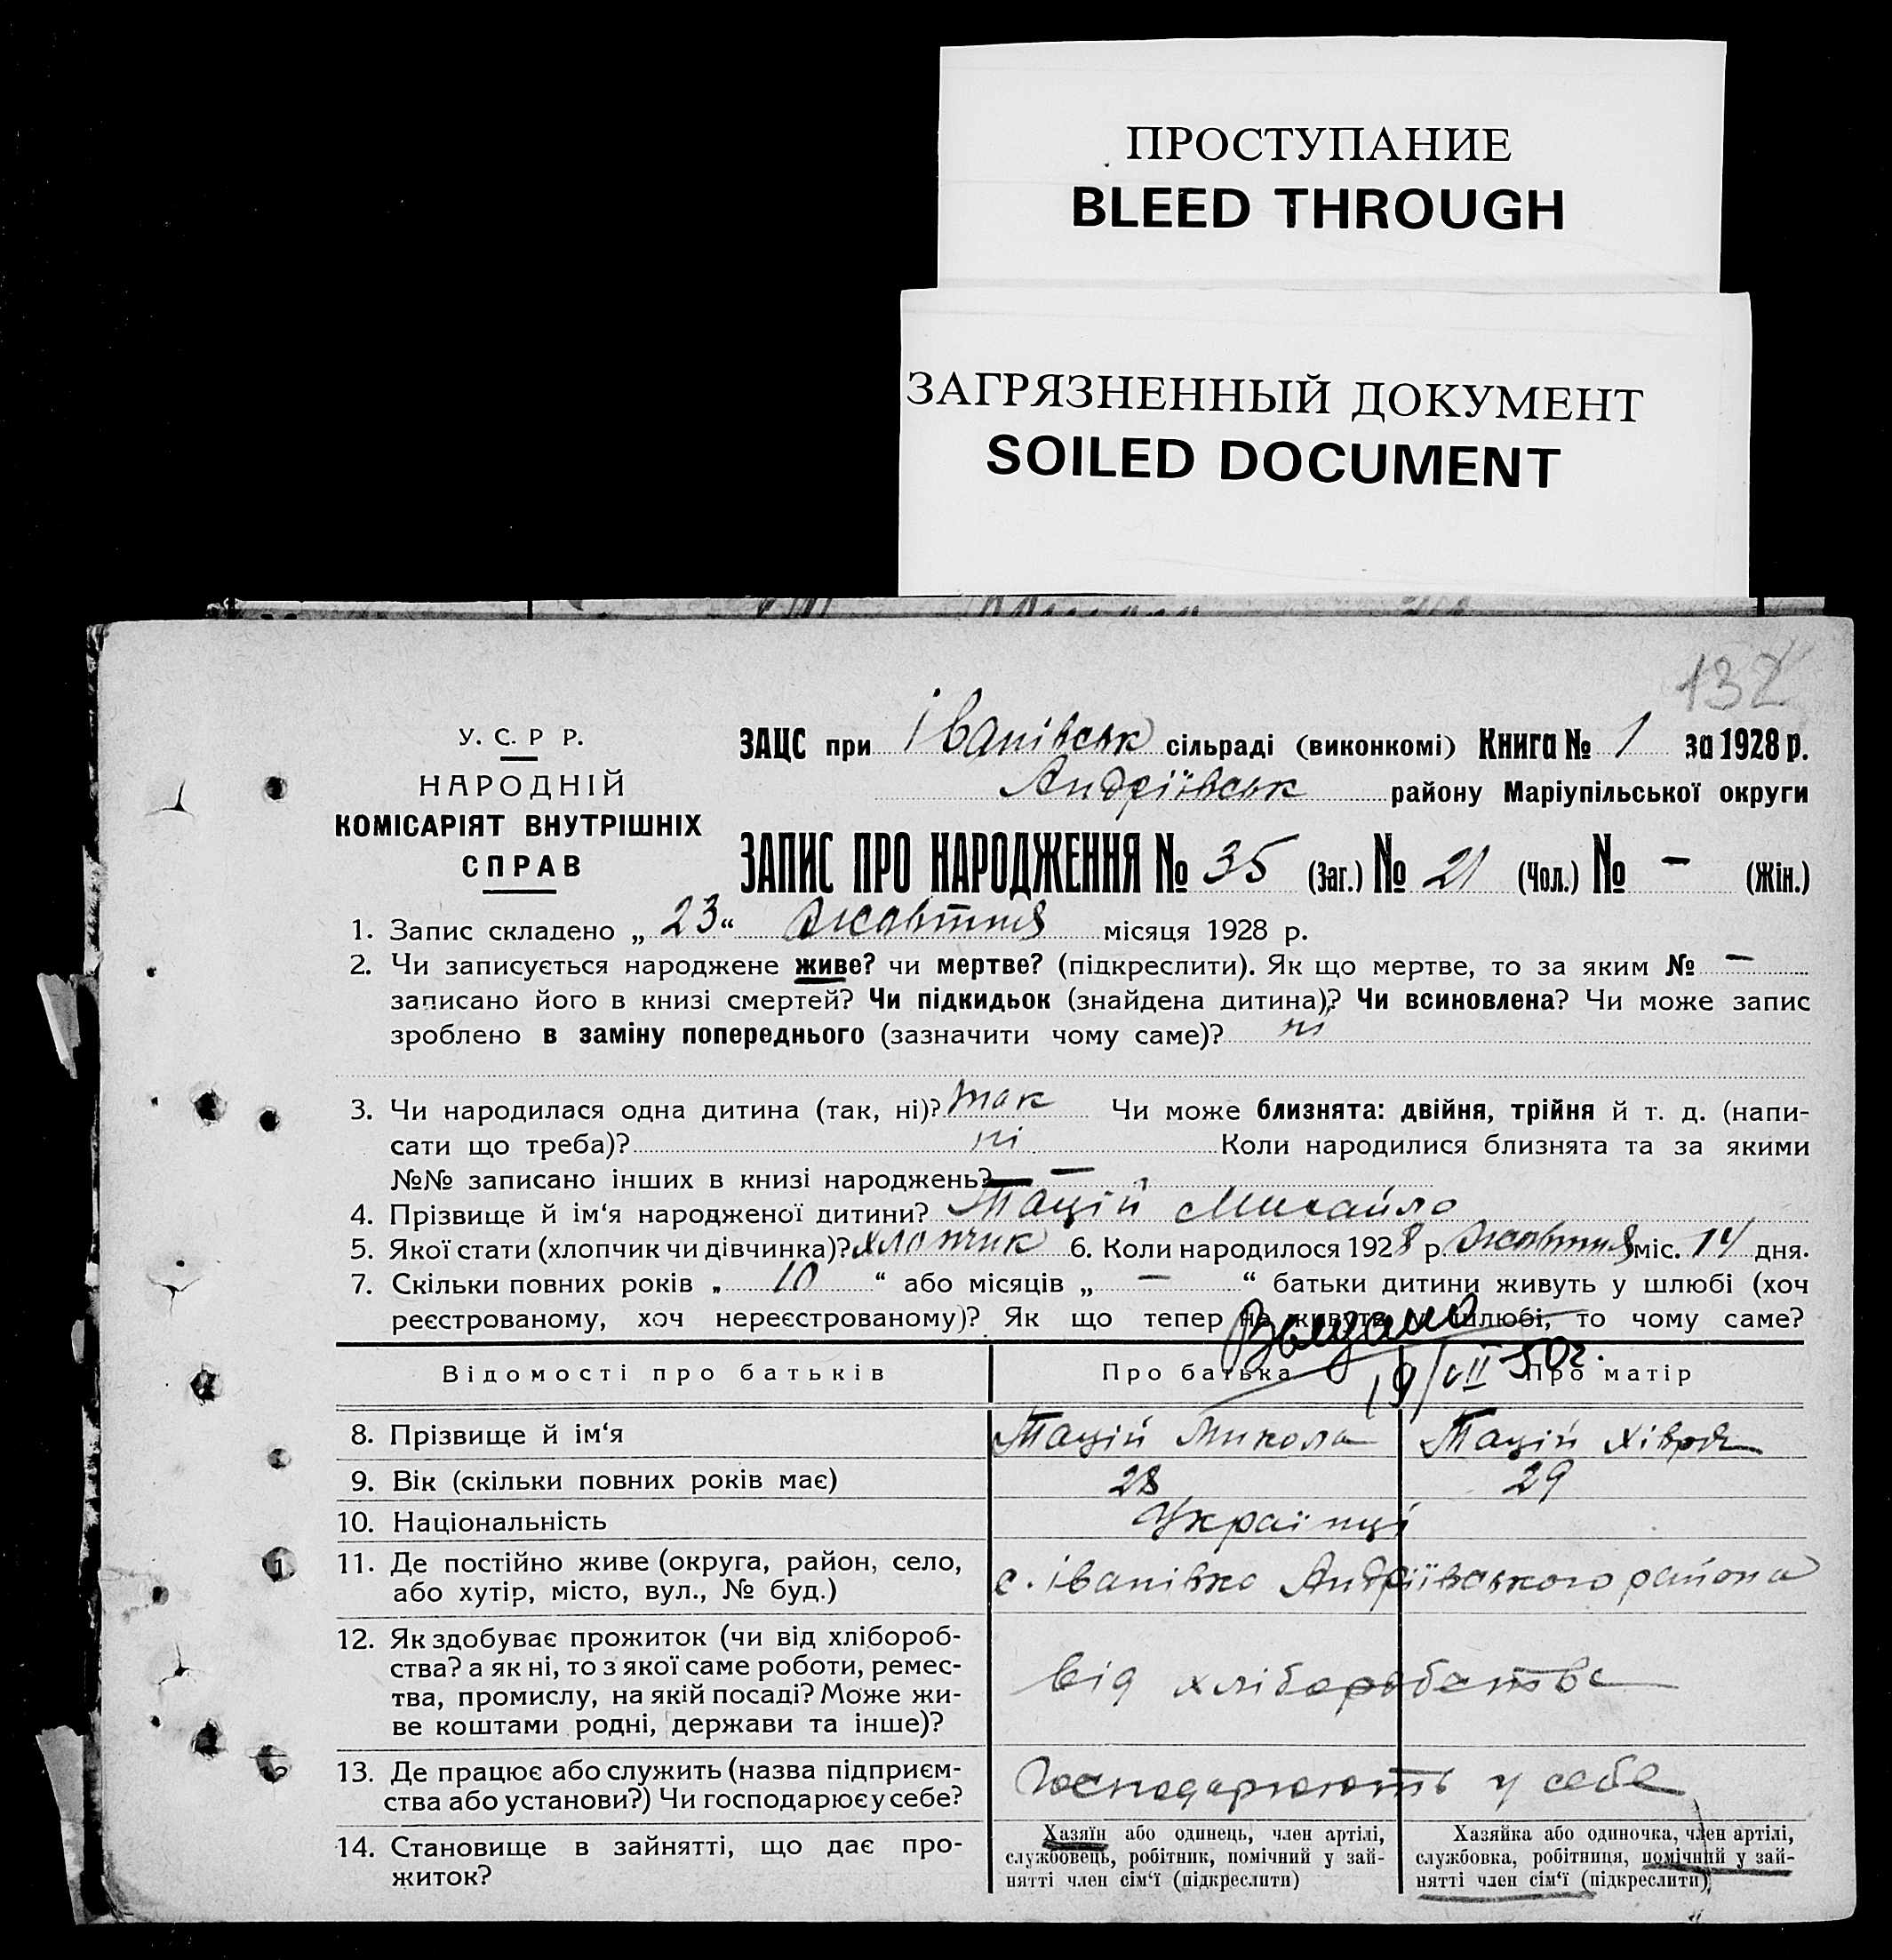 ПРОСТУПАНИЕ
BLEED THROUGH
ЗАГРЯЗНЕННЫЙ ДОКУМЕНТ
SOILED DOCUMENT
132
У. С. Р Р.
НАРОДНІЙ
КОМІСАРІЯТ ВНУТРІШНІХ
СПРАВ
ЗАЦС при Іванівськ сільраді (виконкомі) Книга № 1 за 1928 р.
Андріївськ району Маріупільської округи
ЗАПИС ПРО НАРОДЖЕННЯ № 35 (Заг.) № 21 (Чол.) № — (Жін.)
1. Запис складено „ 23 “ Жовтня місяця 1928 р.
2. Чи записується народжене живе? чи мертве? (підкреслити). Як що мертве, то за яким № —
записано його в книзі смертей? Чи підкидьок (знайдена дитина)? Чи всиновлена? Чи може запис
зроблено в заміну попереднього (зазначити чому саме)? ні
3. Чи народилася одна дитина (так, ні)? так Чи може близнята: двійня, трійня й т. д. (напи-
сати що треба)? ні Коли народилися близнята та за якими
№№ записано інших в книзі народжень? —
4. Прізвище й ім‘я народженої дитини? Тацій Михайло
5. Якої стати (хлопчик чи дівчинка)? хлопчик 6. Коли народилось 1928 р. Жовтня міс. 14 дня.
7. Скільки повних років „ 10 “ або місяців „ — “ батьки дитини живуть у шлюбі (хоч
реєстрованому, хоч нереєстрованому)? Як що тепер не живуть у шлюбі, то чому саме?
Выдано
19/VII 50г.
Відомості про батьків Про батька Про матір
8. Прізвище й ім‘я Тацій Микола Тацій Хівря
9. Вік (скільки повних років має) 28 29
10. Національність Українці
11. Де постійно живе (округа, район, село,
або хутір, місто, вул., № буд.) с. Іванівка Андріївського района
12. Як здобуває прожиток (чи від хлібороб-
ства? а як ні, то з якої саме роботи, ремес-
тва, промислу, на якій посаді? Може жи-
ве коштами родні, держави та інше)?
від хліборобства
13. Де працює або служить (назва підприєм-
ства або установи?) Чи господарює у себе?
Господарюють у себе
14. Становище в зайнятті, що дає про-
житок?
Хазяїн або одинець, член артілі,
службовець, робітник, помічний у зай-
нятті член сім‘ї (підкреслити)
Хазяйка або одиночка, член артілі,
службовка, робітниця, помічний у зай-
нятті член сім‘ї (підкреслити)